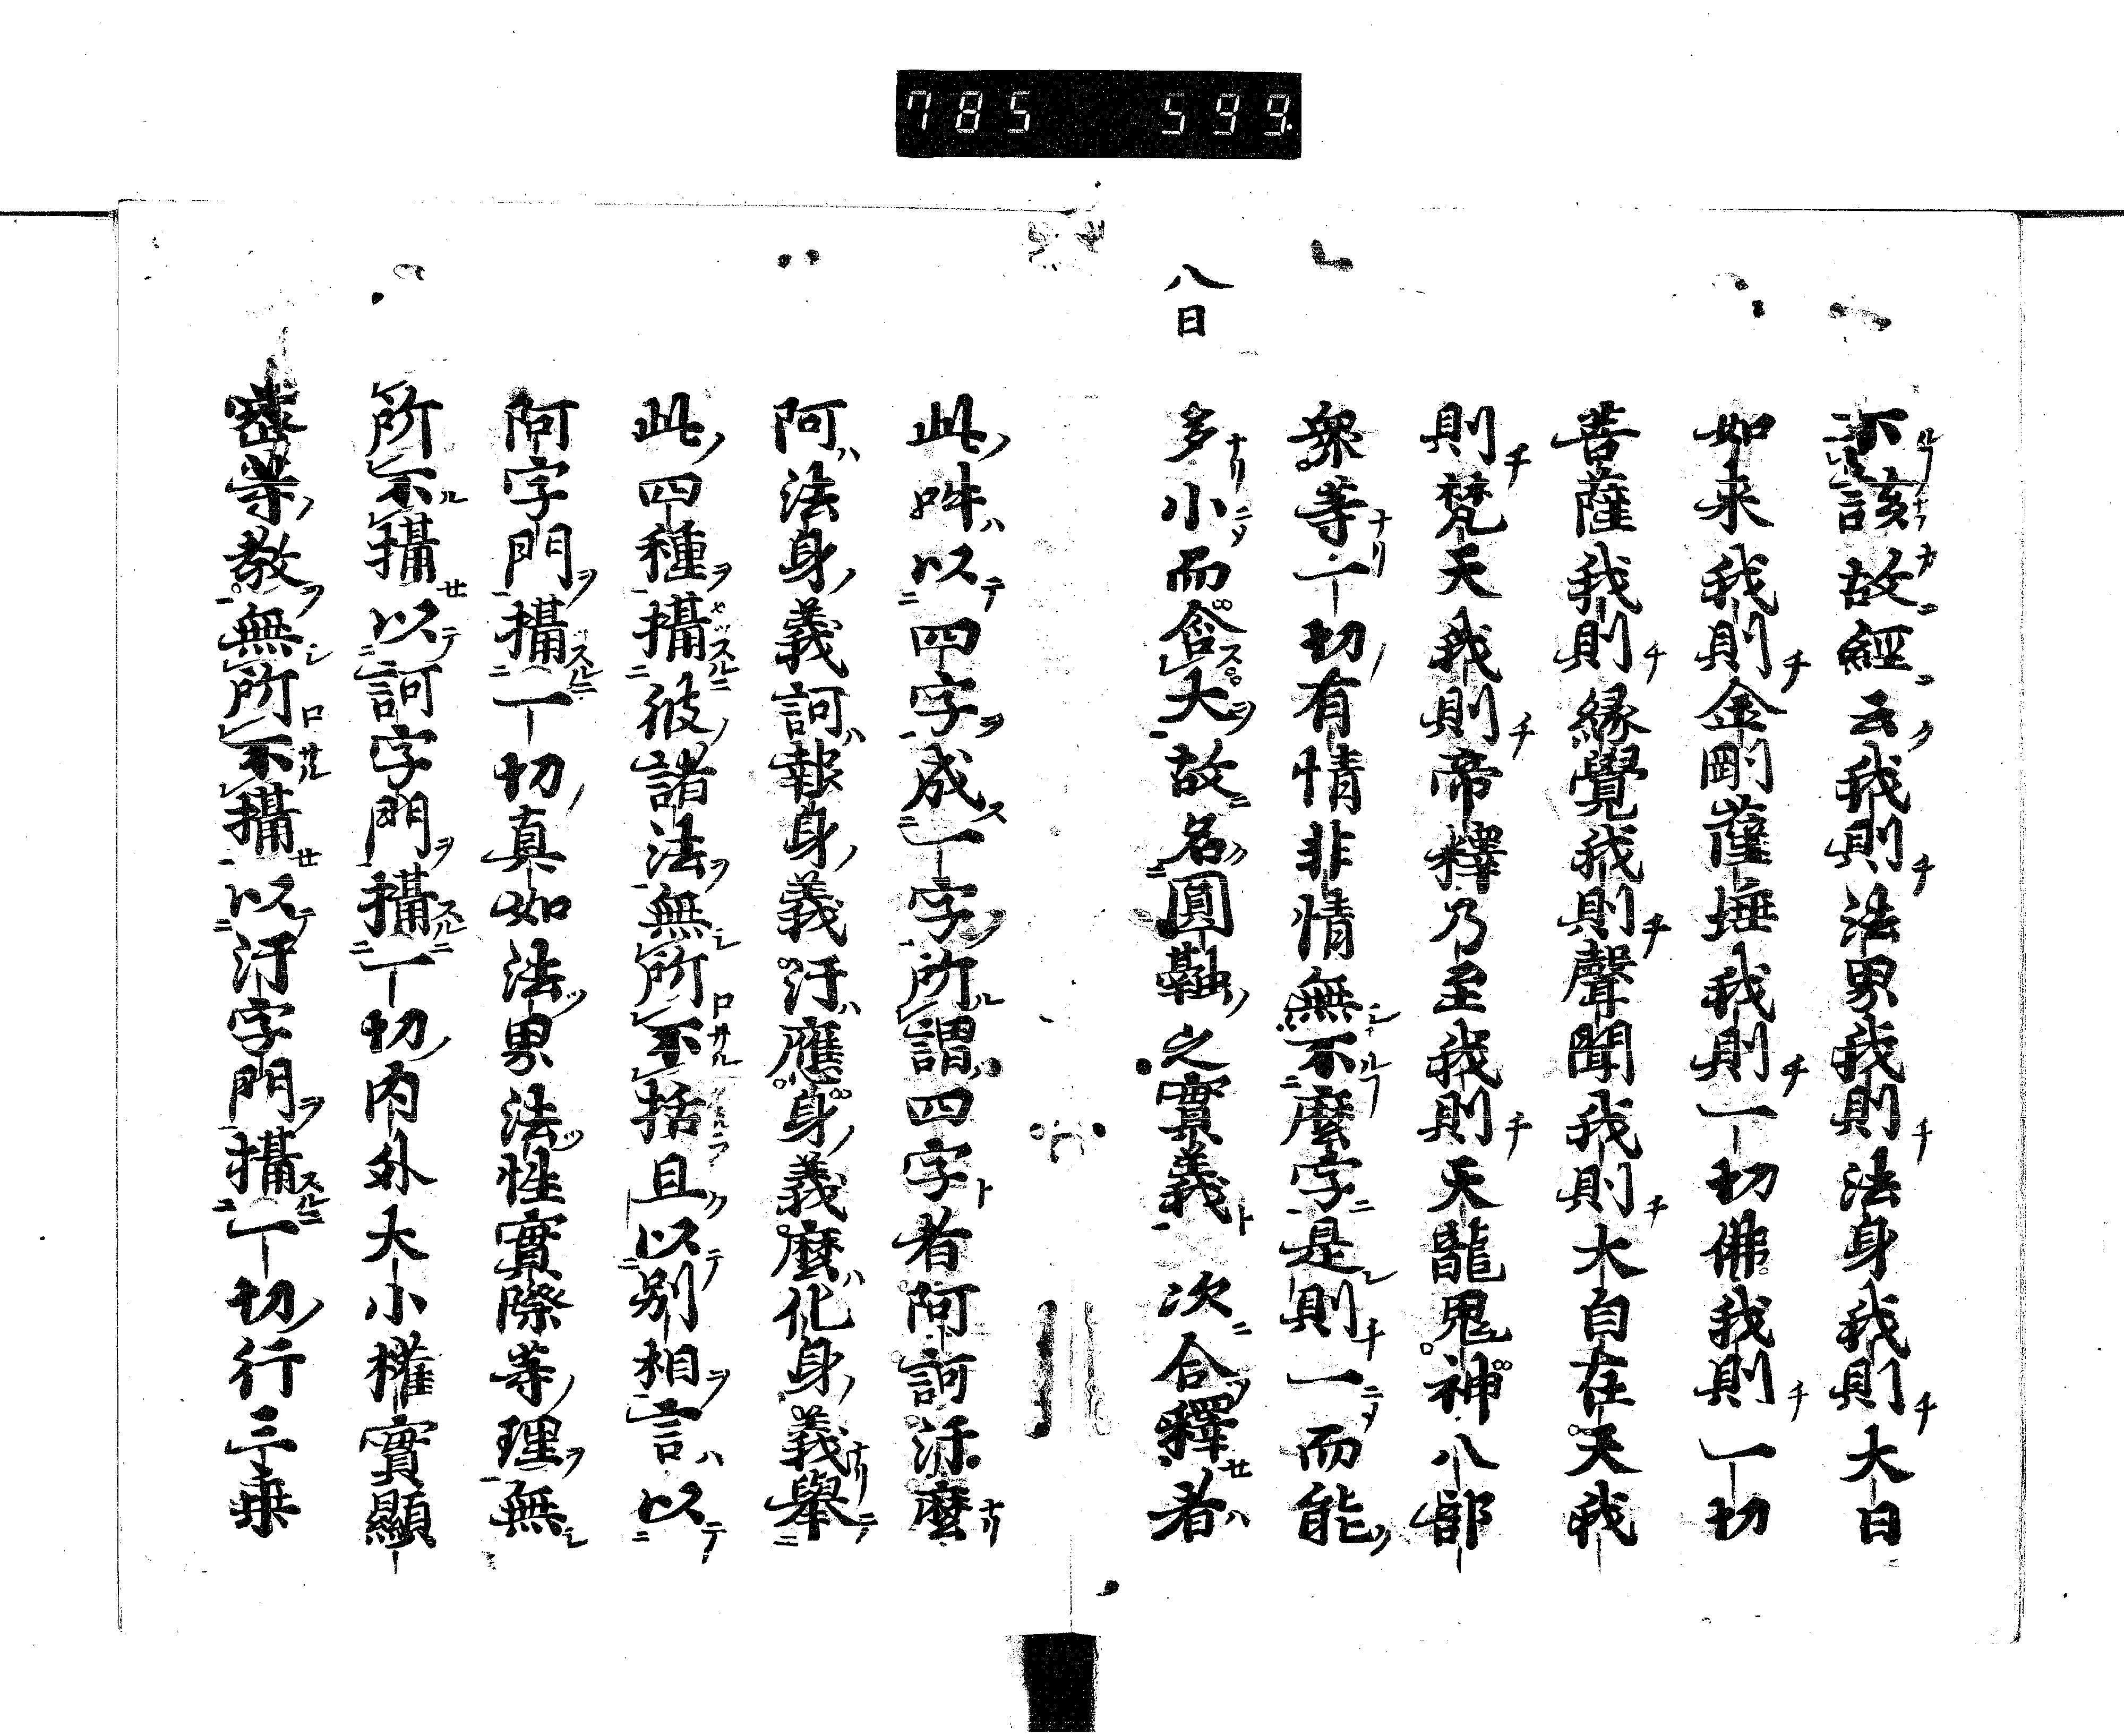 785 599.
不該故經云我則法界我則法身我則大日
如来我則金剛薩埵我則一切佛我則一切
菩薩我則縁覺我則聲聞我則大自在天我
則梵天我則帝釋乃至我則天龍鬼神八部
衆等一切有情非情無不麼字是則一而能
八日
多小而含大故名圓融之實義次合釋者
此吽以四字成一字所謂四字者阿訶汙麼
阿法身義訶報身義汙應身義麼化身義舉
此四種攝彼諸法無所不括且以別相言以
阿字門攝一切真如法界法性實際等理無
所不攝以訶字門攝一切内外大小權實顯
密等教無所不攝以汙字門攝一切行三乗